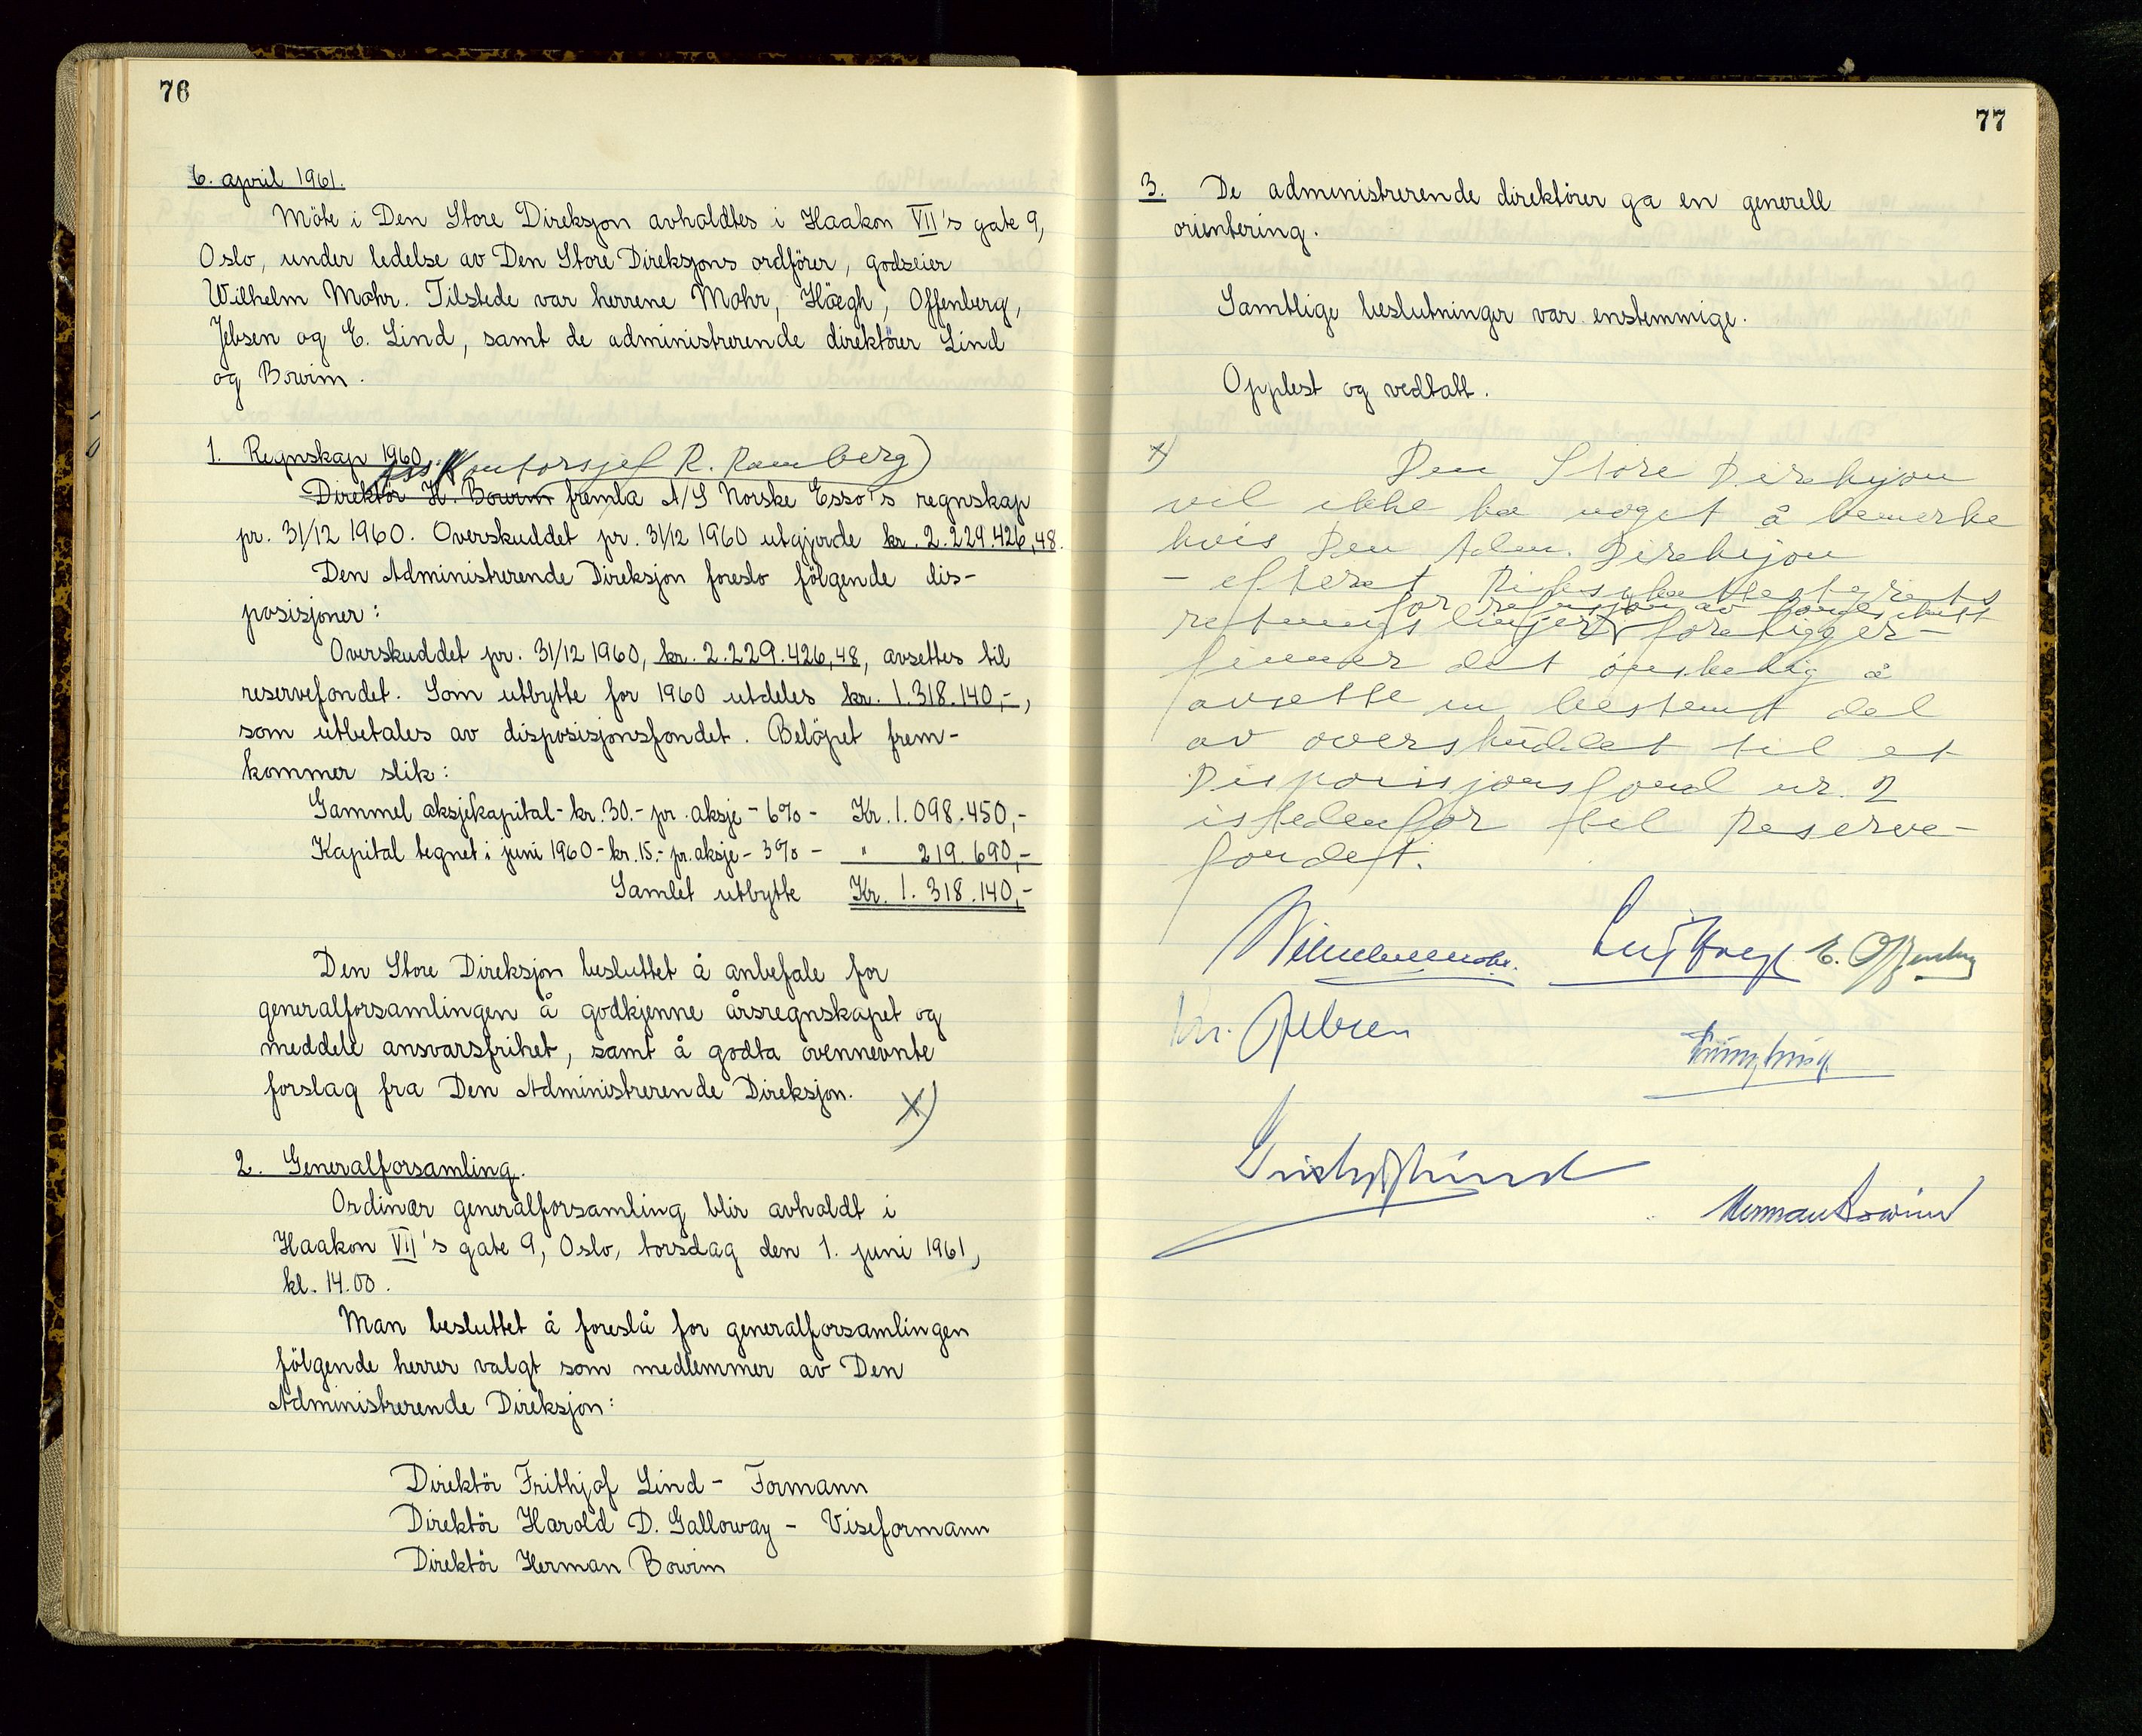 76
6. april 1961.
Möte i Den Store Direksjon avholdtes i Haakon VII's gate 9,
Oslo, under ledelse av Den Store Direksjons ordförer, godseier
Wilhelm Mohr. Tilstede var herrene Mohr, Höegh, Offenberg,
Jebsen og E. Lind, samt de administrerende direktörer Lind
og Bowim.
1. Regnskap 1960.
Kontorsjef R. Ramberg)
Direktör H. Bowim fremla A/S Norske Esso's regnskap
pr. 31/12 1960. Overskuddet pr. 31/12 1960 utgjorde kr. 2.229.426,48.
Den Administrerende Direksjon foreslo fölgende dis-
posisjoner:
Overskuddet pr. 31/12 1960, kr. 2.229.426,48, avsettes til
reservefondet. Som utbytte for 1960 utdeles kr. 1.318.140,-,
som utbetales av disposisjonsfondet. Belöpet frem-
kommer slik:
Gammel aksjekapital - kr. 30.- pr. aksje - 6% - Kr. 1.098.450,-
Kapital tegnet i juni 1960 - kr. 15.- pr. aksje - 3% - " 219.690,-
Samlet utbytte Kr. 1.318.140,-
Den Store Direksjon besluttet å anbefale for
generalforsamlingen å godkjenne årsregnskapet og
meddele ansvarsfrihet, samt å godta ovennevnte
forslag fra Den Administrerende Direksjon. x)
2. Generalforsamling.
Ordinær generalforsamling blir avholdt i
Haakon VII's gate 9, Oslo, torsdag den 1. juni 1961,
kl. 14.00.
Man besluttet å foreslå for generalforsamlingen
fölgende herrer valgt som medlemmer av Den
Administrerende Direksjon:
Direktör Frithjof Lind - Formann
Direktör Harold D. Galloway - Viseformann
Direktör Herman Bowim
77
3. De administrerende direktörer ga en generell
orientering.
Samtlige beslutninger var enstemmige.
Opplest og vedtatt.
x) Den Store Direksjon
vil ikke ha noget å bemerke
hvis Den Adm. Direksjon
- efterat Riksskattestyrets
for refusjon av
retningslinjer foreligger -
finner det önskelig å
avsette en bestemt del
av overskuddet til et
Disposisjonsfond nr. 2
istedenfor til Reserve-
fondet.
Wilhelm Mohr. Leif Höegh E. Offenberg
Kr. Jebsen
Frithjof Lind
Herman Bowim